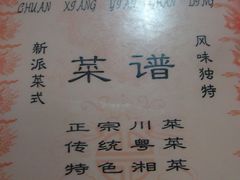 CHUAN XIANG YUAN
新派菜式
菜谱
风味独特
正宗川菜
传统粤菜
特色湘菜